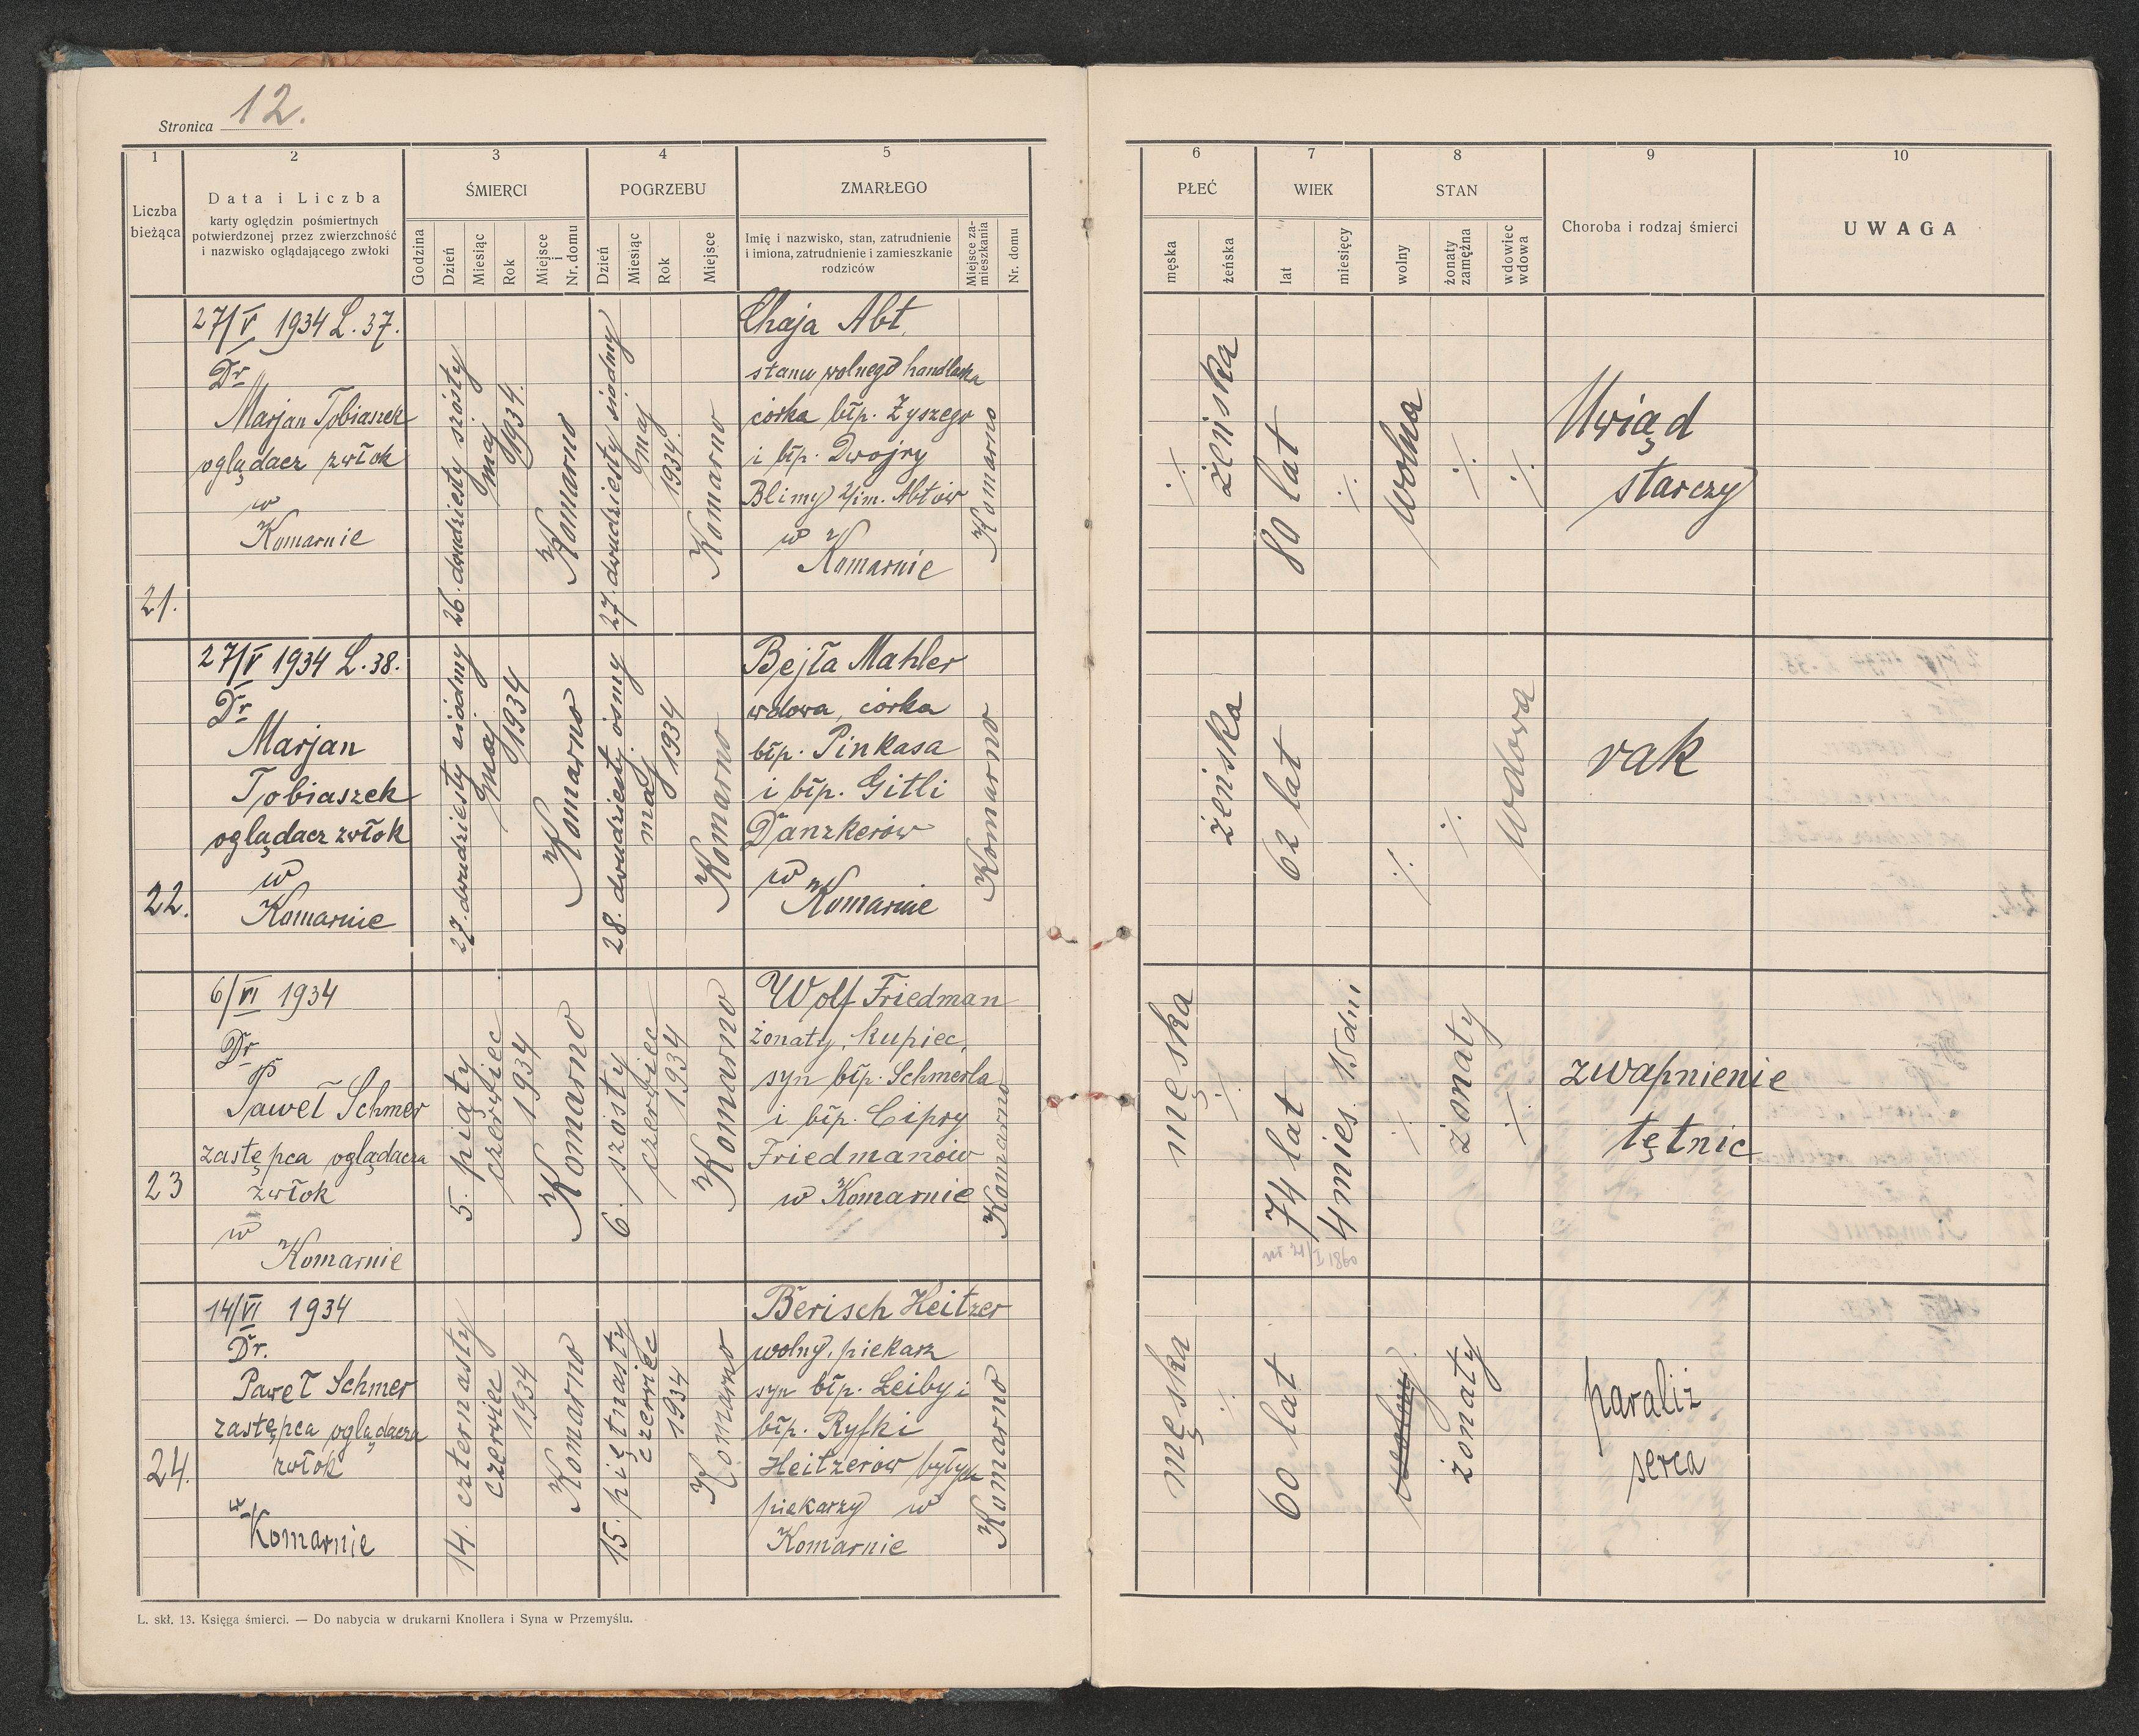 Stronica 12.
1 2 3 4 5
Liczba bieżąca
Data i Liczba
karty oględzin pośmiertnych
potwierdzonej przez zwierzchność
i nazwisko oglądającego zwłoki
ŚMIERCI
Godzina
Dzień
Miesiąc
Rok
Miejsce i Nr. domu
POGRZEBU
Dzień
Miesiąc
Rok
Miejsce
ZMARŁEGO
Imię i nazwisko, stan, zatrudnienie
i imiona, zatrudnienie i zamieszkanie
rodziców
Miejsce zamieszkania
Nr. domu
6 7 8 9 10
PŁEĆ
męska
żeńska
WIEK
lat
miesięcy
STAN
wolny
żonaty zamężna
wdowiec wdowa
Choroba i rodzaj śmierci
UWAGA
21.
27/V 1934 L. 37.
Dr
Marjan Tobiaszek
oglądacz zwłok
w
Komarnie
26. dwudziesty szósty
maj
1934.
Komarno
27. dwudziesty siódmy
maj
1934.
Komarno
Chaja Abt.
stanu wolnego handlarka
córka błp. Zyszego
i błp. Dwojry
Blimy 2/im. Abtów
w
Komarnie
Komarno
⁒
żeńska
80 lat
⁒
wolna
⁒
⁒
Uwiąd
starczy
22.
27/V 1934 L. 38.
Dr
Marjan
Tobiaszek
oglądacz zwłok
w
Komarnie
27. dwudziesty siódmy
maj
1934
Komarno
28. dwudziesty ósmy
maj
1934
Komarno
Bejła Mahler
wdowa, córka
błp. Pinkasa
i błp. Gitli
Danzkerów
w
Komarnie
Komarno
żeńska
62 lat
⁒
⁒
wdowa
rak
23
6/VI 1934
Dr
Paweł Schmer
zastępca oglądacza
zwłok
w
Komarnie
5. piąty
czerwiec
1934
Komarno
6. szósty
czerwiec
1934
Komarno
Wolf Friedman
żonaty, kupiec,
syn błp. Schmerla
i błp. Cipry
Friedmanów
w Komarnie
Komarno
męska
⁒
74 lat
4 mies. 15 dni
⁒
żonaty
⁒
zwapnienie
tętnic
ur. 21/I 1860
24.
14/VI 1934
Dr.
Paweł Schmer
zastępca oglądacza
zwłok
w
Komarnie
14. czternasty
czerwiec
1934
Komarno
15. piętnasty
czerwiec
1934
Komarno
Berisch Heitzer
wolny, piekarz
syn błp. Leiby i
błp. Ryfki
Heitzerów byłych
piekarzy w
Komarnie
Komarno
męska
⁒
60 lat
wolny
żonaty
paraliż
serca
L. skł. 13. Księga śmierci. — Do nabycia w drukarni Knollera i Syna w Przemyślu.